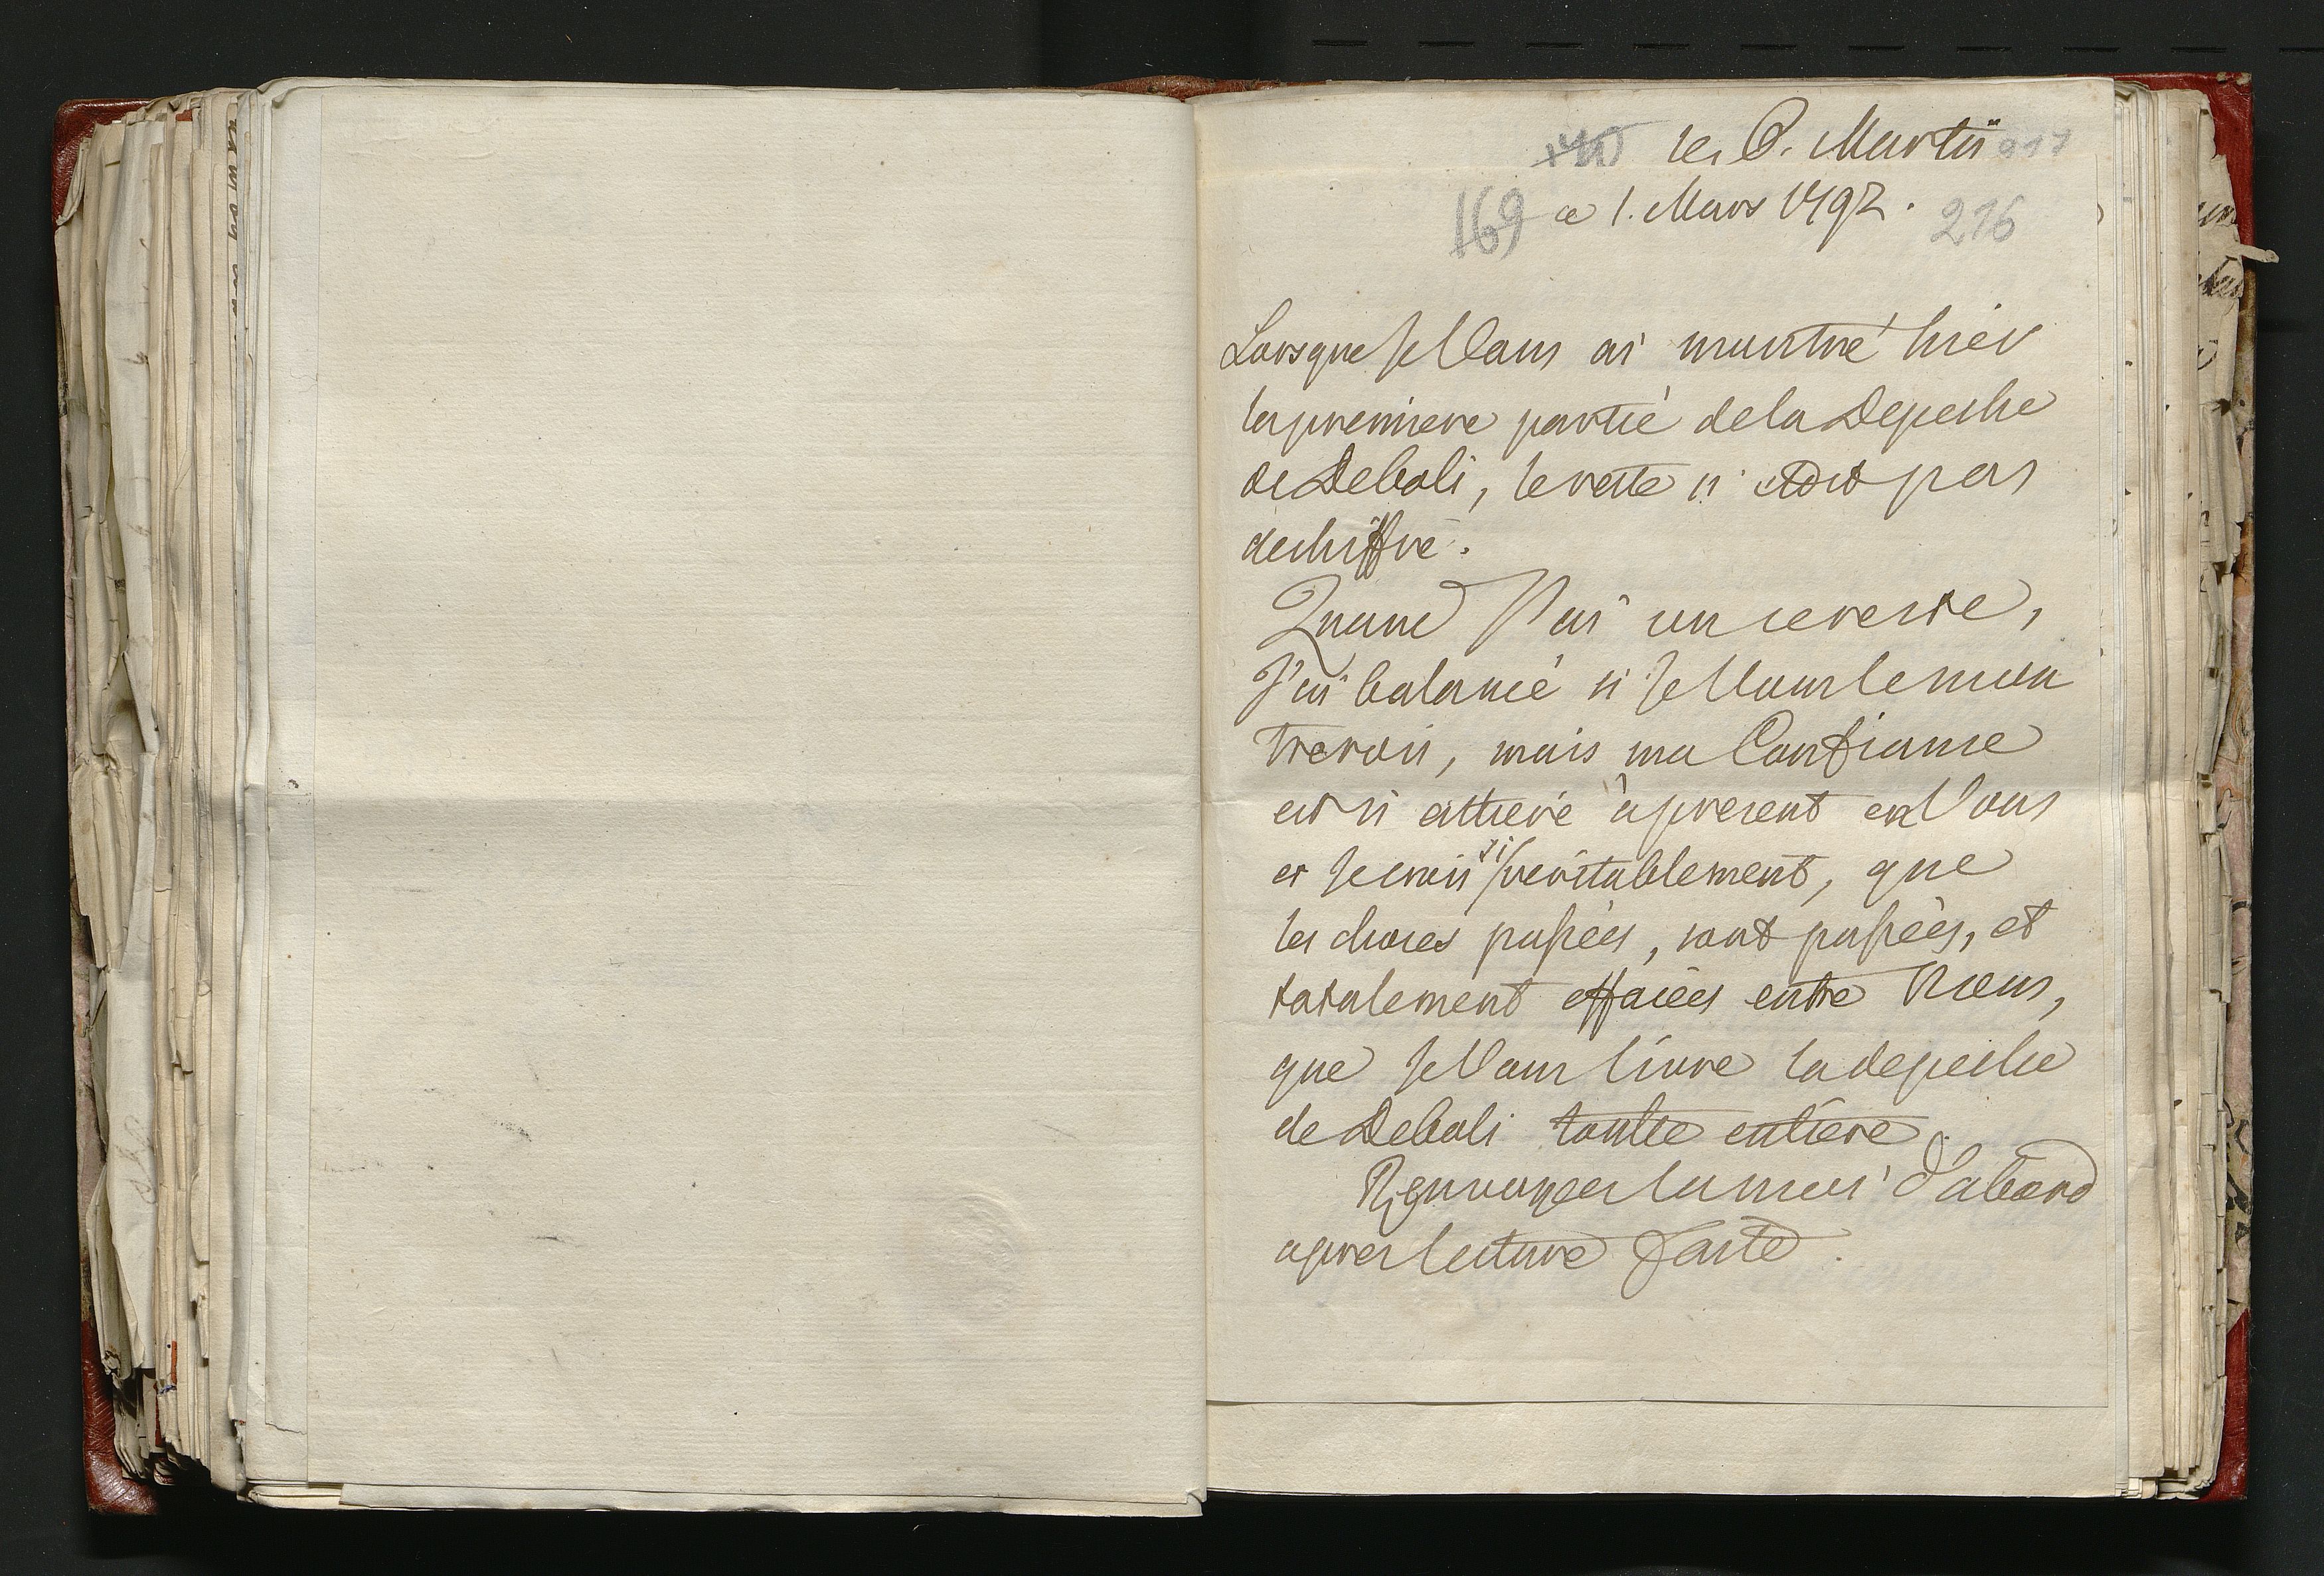 le 6. Martii
169 ce 1. Mars 1792. 216
Lorsque Je Vous ai montré hier
la premiere partie de la Depeche
de Deboli, le reste n'etoit pas
dechiffré.
Quand J'ai vu ce reste,
J'ai balancé si Je Vous le mon
trerois, mais ma Confiance
est si entiere apresent en Vous
et Je crois si veritablement, que
les choses passées, sont passées, et
totalement effacées entre Nous,
que Je Vous livre la depeche
de Deboli toutte entiere.
Renvoyes la moi d'abord
apres lecture faite.